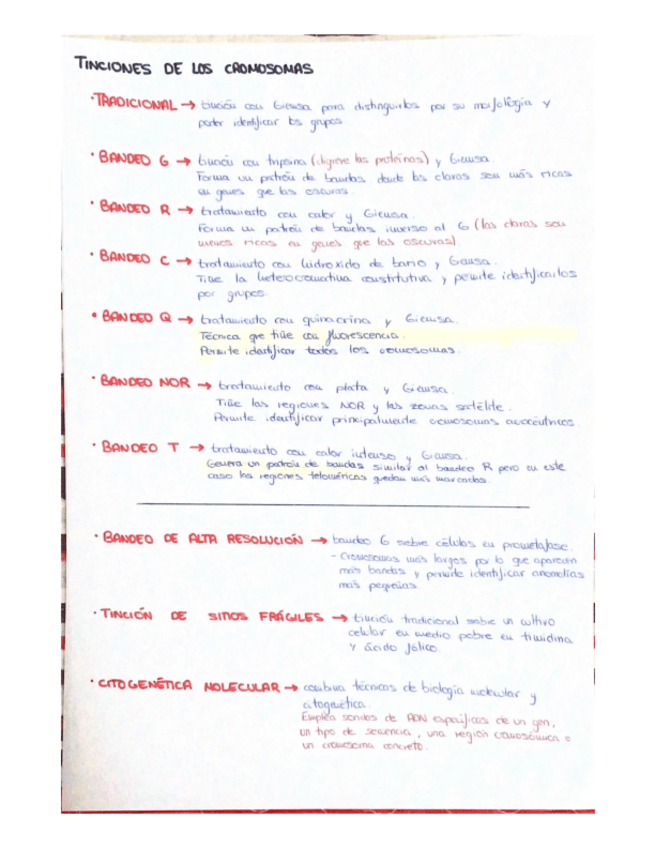 TINCIONES DE LOS CROMOSOMAS
· TRADICIONAL → tinción con Giemsa para distinguirlos por su morfología y
poder identificar los grupos.
· BANDEO G → tinción con tripsina (digiere las proteínas) y Giemsa.
Forma un patrón de bandas donde las claras son más ricas
en genes que las oscuras.
· BANDEO R → tratamiento con calor y Giemsa.
Forma un patrón de bandas inverso al G (las claras son
menos ricas en genes que las oscuras).
· BANDEO C → tratamiento con hidróxido de bario y Giemsa.
Tiñe la heterocromatina constitutiva y permite identificarlos
por grupos.
· BANDEO Q → tratamiento con quinacrina y Giemsa.
Técnica que tiñe con fluorescencia.
Permite identificar todos los cromosomas.
· BANDEO NOR → tratamiento con plata y Giemsa.
Tiñe las regiones NOR y las zonas satélite.
Permite identificar principalmente cromosomas acrocéntricos.
· BANDEO T → tratamiento con calor intenso y Giemsa.
Genera un patrón de bandas similar al bandeo R pero en este
caso las regiones teloméricas quedan más marcadas.
· BANDEO DE ALTA RESOLUCIÓN → bandeo G sobre células en prometafase.
- Cromosomas más largos por lo que aparecen
más bandas y permite identificar anomalías
más pequeñas.
· TINCIÓN DE SITIOS FRÁGILES → tinción tradicional sobre un cultivo
celular en medio pobre en timidina
y ácido fólico.
· CITOGENÉTICA MOLECULAR → combina técnicas de biología molecular y
citogenética.
Emplea sondas de ADN específicas de un gen,
un tipo de secuencia, una región cromosómica o
un cromosoma concreto.